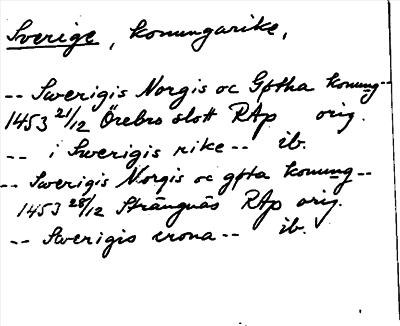 Sverige, konungarike,
-- Swerigis Norgis oc Gøtha konung--
1453 21/12 Örebro slott RAp orig.
-- i Swerigis rike -- ib.
-- Swerigis Norgis oc gøta konung--
1453 28/12 Strängnäs RAp orig.
-- Swerigis crona -- ib.